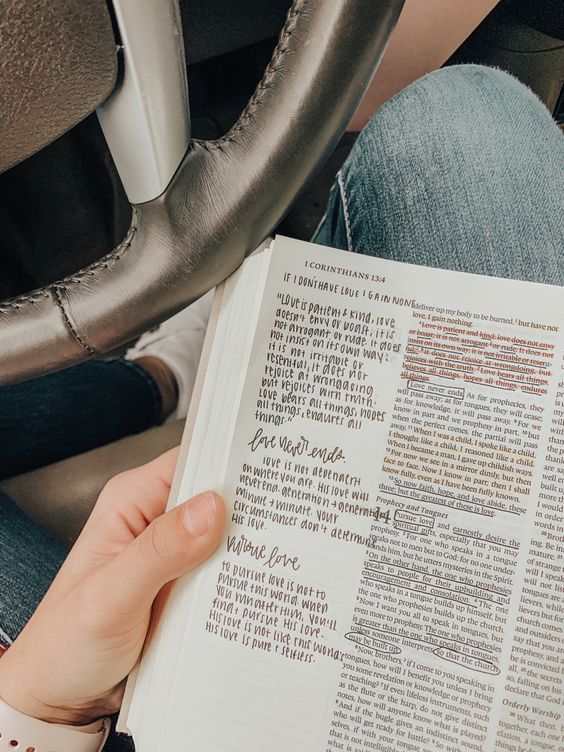 1 CORINTHIANS 13:4
IF I DON'T HAVE LOVE I GAIN NONE
"LOVE IS PATIENT & KIND, LOVE
DOESN'T ENVY OR BOAST; IT IS
NOT ARROGANT OR RUDE. IT DOES
NOT INSIST ON ITS OWN WAY;
IT IS NOT IRRITABLE OR
RESENTFUL, IT DOES NOT
REJOICE AT WRONGDOING,
BUT REJOICES WITH TRUTH.
LOVE BEARS ALL THINGS, HOPES
ALL THINGS, ENDURES ALL
THINGS."
love never ends.
LOVE IS NOT DEPENDENT
ON WHERE YOU ARE. HIS LOVE WILL
NEVER END. GENERATION + GENERATION
MINUTE + MINUTE. YOUR
CIRCUMSTANCES DON'T DETERMINE
HIS LOVE.
pursue love
TO PURSUE LOVE IS NOT TO
PURSUE THIS WORLD. WHEN
YOU RUN AFTER HIM, YOU'LL
FIND + PURSUE HIS LOVE.
HIS LOVE IS NOT LIKE THIS WORLD'S
HIS LOVE IS PURE + SELFLESS.
deliver up my body to be burned, but have not
love, I gain nothing.
4 Love is patient and kind; love does not envy
or boast; it is not arrogant 5 or rude. It does not
insist on its own way; it is not irritable or resent-
ful; 6 it does not rejoice at wrongdoing, but
rejoices with the truth. 7 Love bears all things,
believes all things, hopes all things, endures
all things.
8 Love never ends. As for prophecies, they
will pass away; as for tongues, they will cease;
as for knowledge, it will pass away. 9 For we
know in part and we prophesy in part, 10 but
when the perfect comes, the partial will pass
away. 11 When I was a child, I spoke like a child,
I thought like a child, I reasoned like a child.
When I became a man, I gave up childish ways.
12 For now we see in a mirror dimly, but then
face to face. Now I know in part; then I shall
know fully, even as I have been fully known.
13 So now faith, hope, and love abide, these
three; but the greatest of these is love.
Prophecy and Tongues
14 Pursue love, and earnestly desire the
spiritual gifts, especially that you may
prophesy. 2 For one who speaks in a tongue
speaks not to men but to God; for no one under-
stands him, but he utters mysteries in the Spirit.
3 On the other hand, the one who prophesies
speaks to people for their upbuilding and
encouragement and consolation. 4 The one
who speaks in a tongue builds up himself, but
the one who prophesies builds up the church.
5 Now I want you all to speak in tongues, but
even more to prophesy. The one who prophesies
is greater than the one who speaks in tongues,
unless someone interprets, so that the church
may be built up.
6 Now, brothers, if I come to you speaking in
tongues, how will I benefit you unless I bring
you some revelation or knowledge or prophecy
or teaching? 7 If even lifeless instruments, such
as the flute or the harp, do not give distinct
notes, how will anyone know what is played?
8 And if the bugle gives an indistinct sound,
who will get ready for battle? 9 So with
Orderly Worship
26 What then,